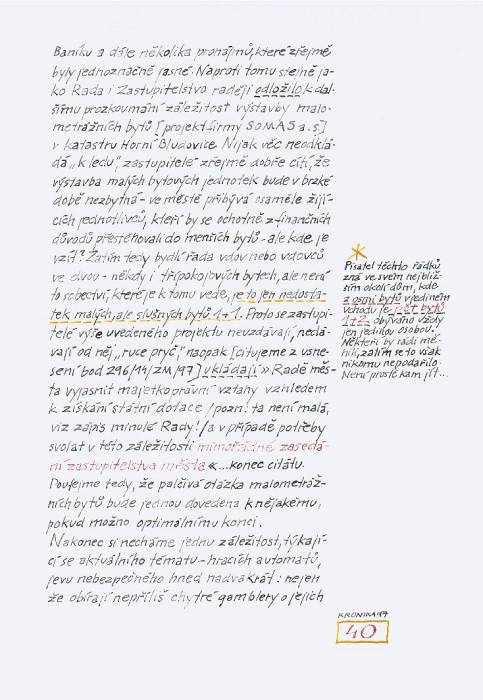 Baníku a dále několika pronájmů, které zřejmě
byly jednoznačně jasné. Naproti tomu stejně ja-
ko Rada i Zastupitelstvo raději odložilo k dal-
šímu prozkoumání záležitost výstavby malo-
metrážních bytů [projekt firmy SOMAS a.s.]
v katastru Horní Bludovice. Nijak věc neodklá-
dá „k ledu", zastupitelé zřejmě dobře cítí, že
výstavba malých bytových jednotek bude v brzké
době nezbytná - ve městě přibývá osaměle žijí-
cích jednotlivců, kteří by se ochotně z finančních
důvodů přestěhovali do menších bytů - ale kde je
vzít? Zatím tedy bydlí řada vdov nebo vdovců
ve dvou - někdy i třípokojových bytech, ale není
to sobectví, které je k tomu vede, je to jen nedosta-
tek malých, ale slušných bytů 1+1. Proto se zastupi-
telé výše uvedeného projektu nevzdávají, nedá-
vají od něj „ruce pryč", naopak [citujeme z usne-
sení bod 296/14/ZM/97] ukládají » Radě měs-
ta vyjasnit majetkoprávní vztahy vzhledem
k získání státní dotace /pozn! ta není malá,
viz zápis minulé Rady!/ a v případě potřeby
svolat v této záležitosti mimořádné zasedá-
ní zastupitelstva města «...konec citátu.
Doufejme tedy, že palčivá otázka malometráž-
ních bytů bude jednou dovedena k nějakému,
pokud možno optimálnímu konci.
Nakonec si necháme jednu záležitost, týkají-
cí se aktuálního tématu - hracích automatů,
jevu nebezpečného hned nadvakrát: nejen
že obírají nepříliš chytré gamblery o jejich
Pisatel těchto řádků
zná ve svém nejbliž-
ším okolí dům, kde
z osmi bytů v jediném
vchodu je pět bytů
1+2 obýváno vždy
jen jedinou osobou.
Někteří by rádi mě-
nili, zatím se to však
nikomu nepodařilo.
Není prostě kam jít...
KRONIKA 97
40